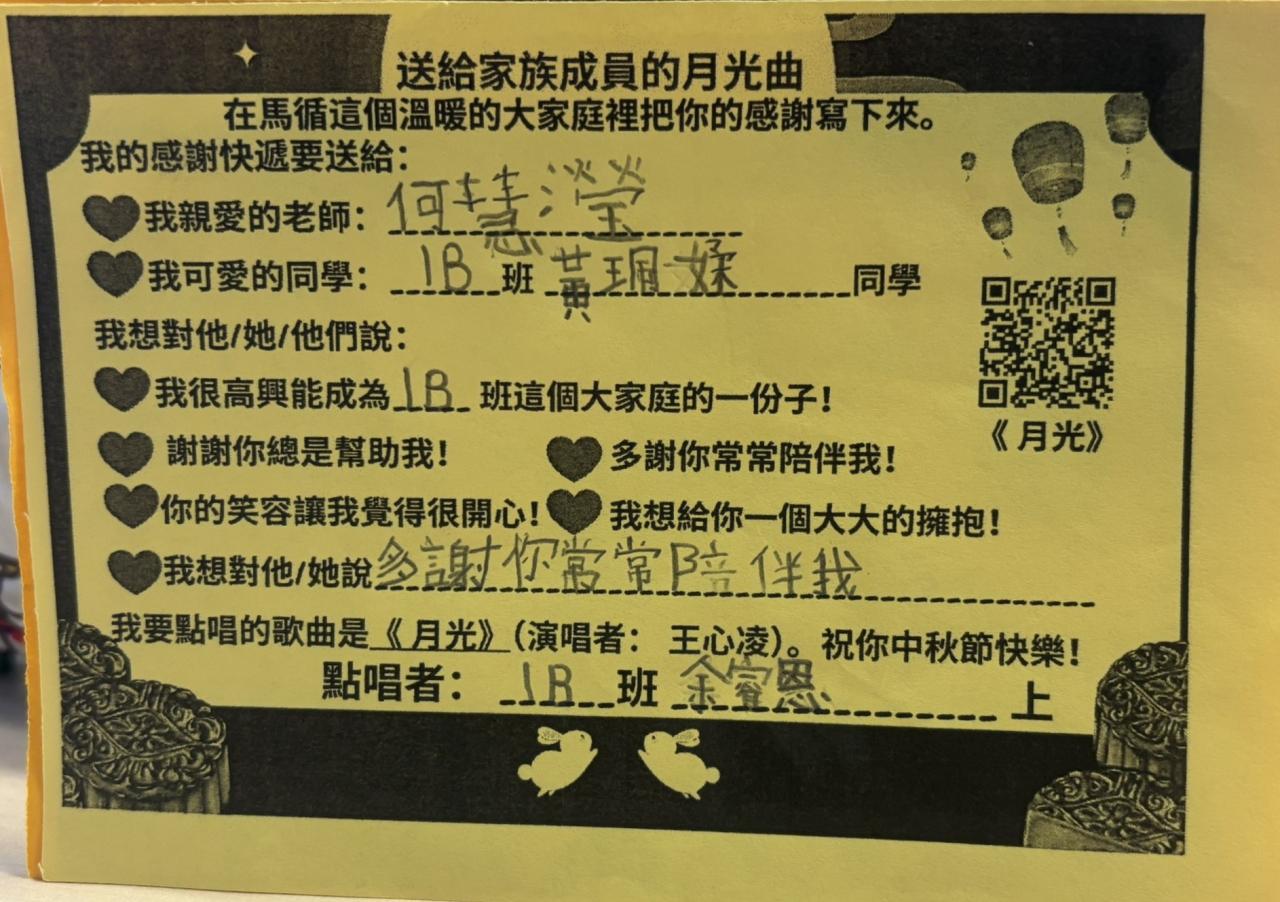 送給家族成員的月光曲
在馬循這個溫暖的大家庭裡把你的感謝寫下來。
我的感謝快遞要送給：
我親愛的老師：何慧瀅
我可愛的同學：1B班 黃珮媃 同學
我想對他/她/他們說：
我很高興能成為1B班這個大家庭的一份子！
謝謝你總是幫助我！ 多謝你常常陪伴我！
你的笑容讓我覺得很開心！ 我想給你一個大大的擁抱！
我想對他/她說多謝你常常陪伴我
《月光》
我要點唱的歌曲是《月光》（演唱者： 王心凌）。祝你中秋節快樂！
點唱者： 1B班 余睿恩 上